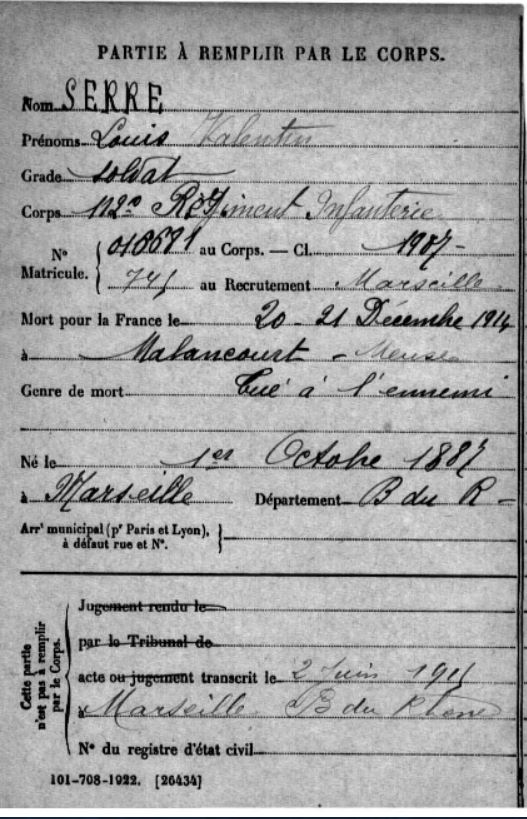 PARTIE À REMPLIR PAR LE CORPS.
Nom SERRE
Prénoms Louis Valentin
Grade soldat
Corps 112e Régiment Infanterie
No Matricule. { au Corps. — Cl. 1907 -
741 au Recrutement Marseille
Mort pour la France le 20 - 21 Décembre 1914
à Malancourt - Meuse
Genre de mort Tué à l'ennemi
Né le 1er Octobre 1887
à Marseille Département B du R -
Arrt municipal (pr Paris et Lyon),
à défaut rue et No.
Cette partie n'est pas à remplir par le Corps.
Jugement rendu le
par le Tribunal de
acte ou jugement transcrit le 2 Juin 1915
à Marseille B du Rhone
No du registre d'état civil
101-708-1922. [26434]